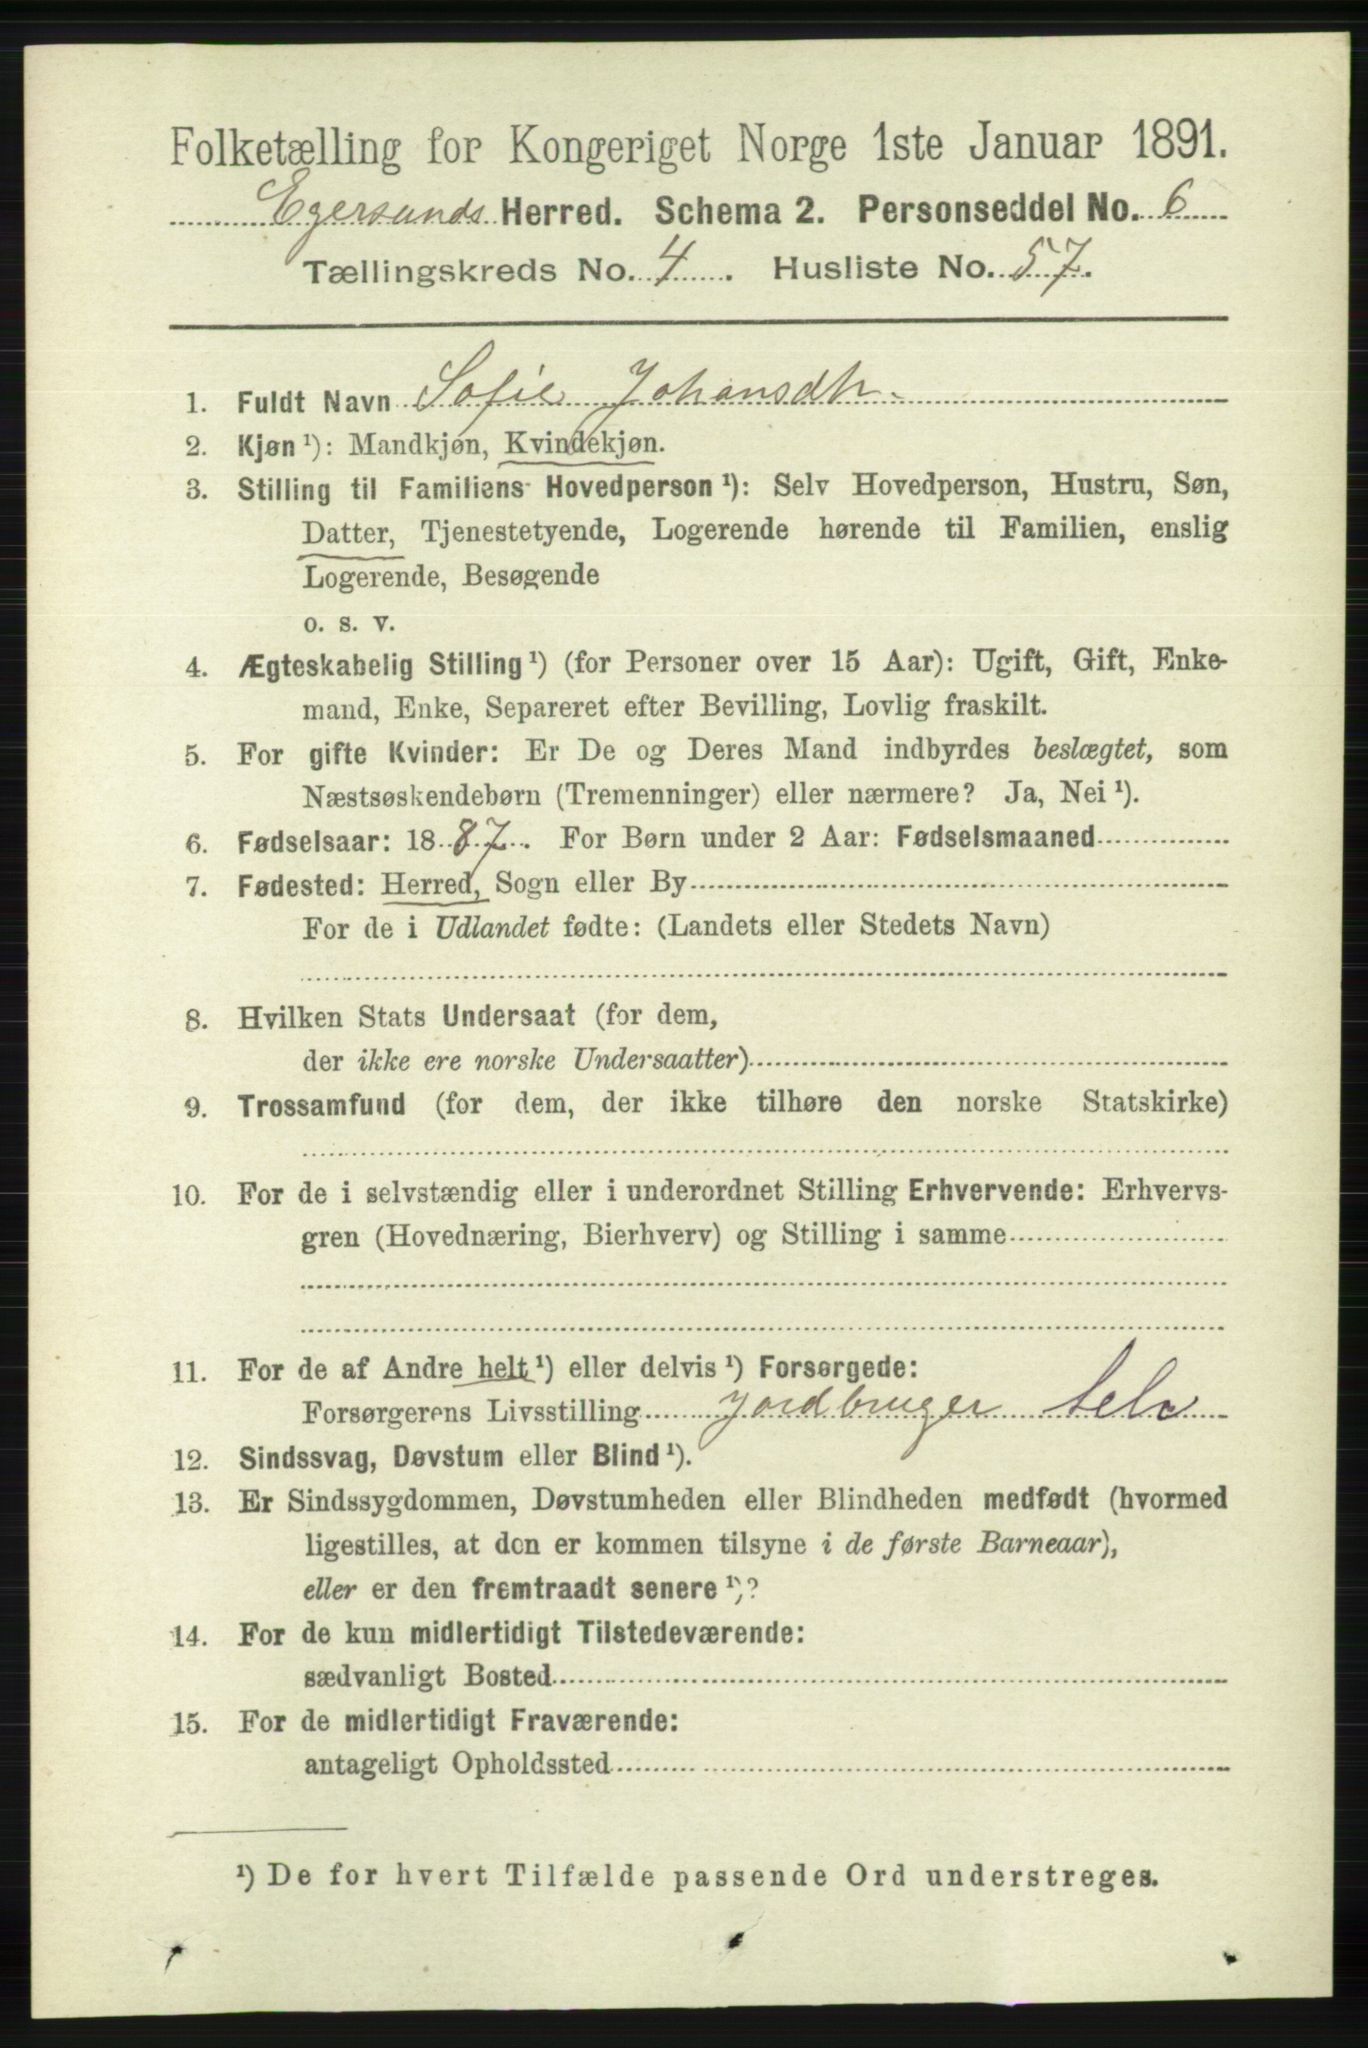 Folketælling for Kongeriget Norge 1ste Januar 1891.
Egersunds Herred. Schema 2. Personseddel No. 6
Tællingskreds No. 4. Husliste No. 57.
1. Fuldt Navn Sofie Johansdtr.
2. Kjøn¹): Mandkjøn, Kvindekjøn.
3. Stilling til Familiens Hovedperson¹): Selv Hovedperson, Hustru, Søn,
Datter, Tjenestetyende, Logerende hørende til Familien, enslig
Logerende, Besøgende
o. s. v.
4. Ægteskabelig Stilling¹) (for Personer over 15 Aar): Ugift, Gift, Enke-
mand, Enke, Separeret efter Bevilling, Lovlig fraskilt.
5. For gifte Kvinder: Er De og Deres Mand indbyrdes beslægtet, som
Næstsøskendebørn (Tremenninger) eller nærmere? Ja, Nei¹).
6. Fødselsaar: 1887. For Børn under 2 Aar: Fødselsmaaned
7. Fødested: Herred, Sogn eller By
For de i Udlandet fødte: (Landets eller Stedets Navn)
8. Hvilken Stats Undersaat (for dem,
der ikke ere norske Undersaatter)
9. Trossamfund (for dem, der ikke tilhøre den norske Statskirke)
10. For de i selvstændig eller i underordnet Stilling Erhvervende: Erhvervs-
gren (Hovednæring, Bierhverv) og Stilling i samme
11. For de af Andre helt¹) eller delvis¹) Forsørgede:
Forsørgerens Livsstilling Jordbruger Selv
12. Sindssvag, Døvstum eller Blind¹).
13. Er Sindssygdommen, Døvstumheden eller Blindheden medfødt (hvormed
ligestilles, at den er kommen tilsyne i de første Barneaar),
eller er den fremtraadt senere¹)?
14. For de kun midlertidigt Tilstedeværende:
sædvanligt Bosted
15. For de midlertidigt Fraværende:
antageligt Opholdssted
¹) De for hvert Tilfælde passende Ord understreges.